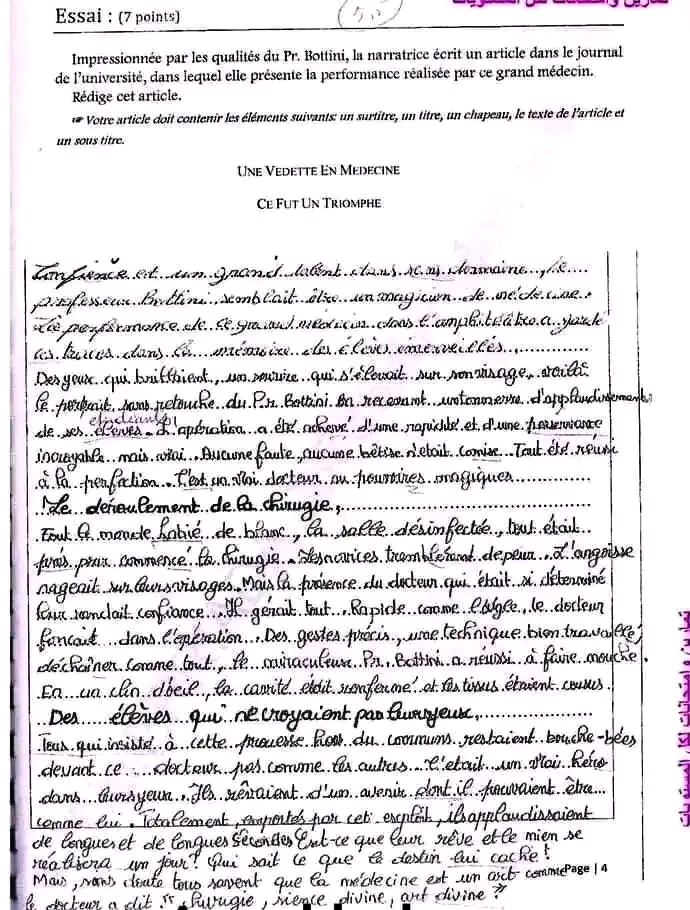 تمارين وامتحانات لكل المستويات
Essai : (7 points)
Impressionnée par les qualités du Pr. Bottini, la narratrice écrit un article dans le journal
de l'université, dans lequel elle présente la performance réalisée par ce grand médecin.
Rédige cet article.
☞ Votre article doit contenir les éléments suivants: un surtitre, un titre, un chapeau, le texte de l'article et
un sous titre.
UNE VEDETTE EN MEDECINE
CE FUT UN TRIOMPHE
est un grand talent dans domaine, le
professeur Bottini semblait être un magicien de médecine.
La performance de ce grand medecin dans l'amphitéâtre a
traces dans la mémoire des élèves émerveillés
Des yeux qui brillaient, un sourire qui s'élevait sur son visage, voilà
le portrait sans retouche du Pr. Bottini en recevant un tonnerre d'applaudissements
de ses étudiants. L'opération a été achevé d'une rapidité et d'une
incroyable mais vrai. Aucune faute, aucune bêtise n'était comise. Tout été réussi
à la perfection. C'est un vrai docteur au pouvoires magiques
Le déroulement de la chirugie,
Tout le monde habié de blanc, la salle désinfectée, tout était
près pour commencé la chirugie. Des novices tremblèrent de peur. L'angoisse
nageait sur leurs visages. Mais la présence du docteur qui était si déterminé
leur rendait confiance. Il gérait tout. Rapide comme l'aigle, le docteur
fonçait dans l'opération. Des gestes précis, une technique bien travaillé,
déchaîner comme tout, le miraculeux Pr. Bottini a réussi à faire mouche.
En un clin d'œil, la cavité était renfermé et les tissus étaient cousus.
Des élèves qui ne croyaient pas leurs yeux,
Tous qui insisté à cette prouesse hors du communs restaient bouche-bées
devant ce docteur pas comme les autres. C'était un vrai héro
dans leurs yeux. Ils rêvaient d'un avenir dont il pouvaient être
comme lui. Totalement, emportés par cet exploit, ils applaudissaient
de longues et de longues secondes Est-ce que leur rêve et le mien se
réalisera un jour? Qui sait ce que le destin lui cache!
Mais, sans doute tous savent que la médecine est un art comme
le docteur a dit " Chirugie, sience divine, art divine "
Page | 4
تمارين و امتحانات لكل المستويات